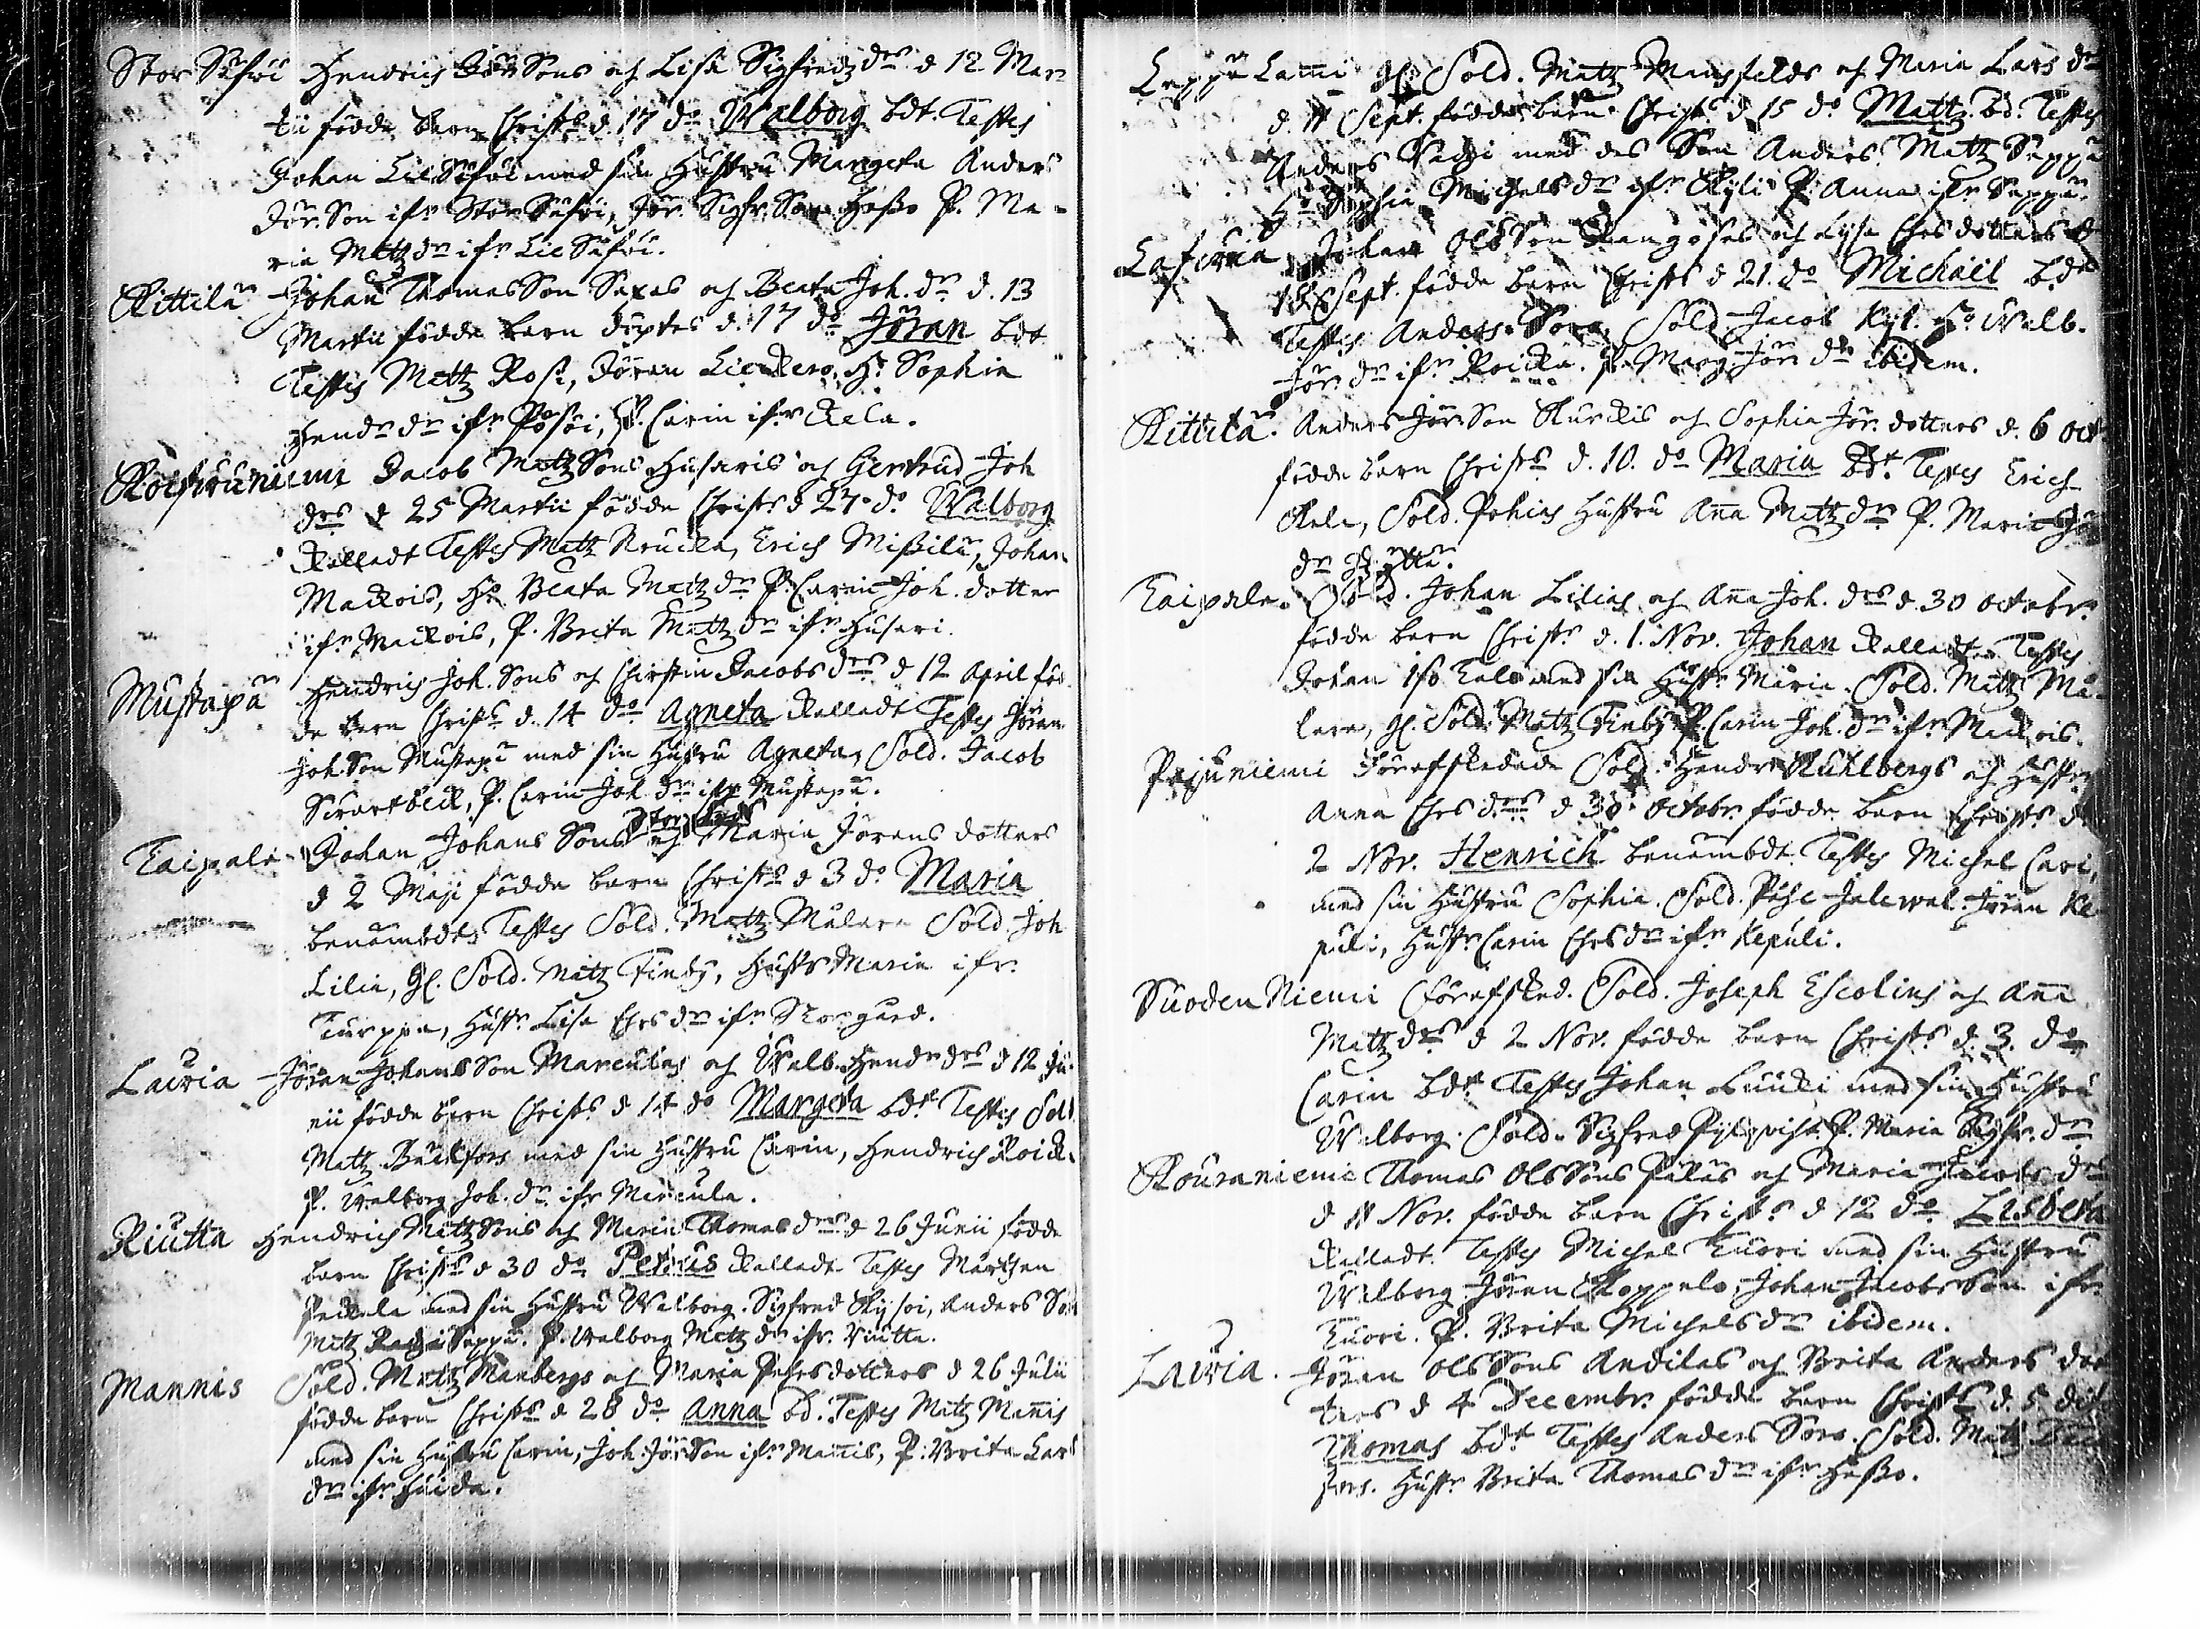 Stor Säfwi Hendrich Jör Sons och Lisa Sigfredz drs d 12 Mar-
tii födde barn Christs d. 17 do Walborg bdt. Testes
Johan Lill Säfwi med sin Hustru Margeta Anders
Jör. Son ifr Stor Säfwi, Jör. Sigfr. Son Hasso P. Ma-
ria Matz dr ifr Lill Säfwi.
Kittilä Johan Thomas Son Saxas och Beata Joh. dr d. 13
Martii födde barn döptes d. 17 do Jöran bdt
Testes Matz Rosi, Jöran Lie Hs Sophia
Hendr dr ifr Pösöi, P. Carin ifr Kela.
Koifwuniemi Jacob Matz Sons Husaris och Gertrud Joh
drs d 25 Martii födde Christs d 27 do Walborg
Kalladt Testes Matz Erich Missilä, Johan
Mackois, Hs Beata Matz dr P. Carin Joh. dotter
ifr Mackois, P. Brita Matz dr ifr Husari.
Mustapä Hendrich Joh. Sons och Christin Jacobs drs d 12 April föd-
de barn Christs d. 14 do Agneta Kalladt Testes Jöran
Joh. Son Mustapä med sin Hustru Agneta, Sold. Jacob
Swartbeck, P. Carin Joh. dr ifr Mustapä.
Taipale Johan Johans Sons och Maria Jörans dotters
d 2 Maji födde barn Christs d 3 do Maria
benämbdt Testes Sold. Matz Målare Sold. Joh
Lilia, Gl. Sold. Matz Finby, Hustr Maria ifr.
Turppa, Hustr Lisa Ers dr ifr Storgård.
Lauria Jöran Johans Son Marculas och Walb. Hendr drs d 12 Ju-
nii födde barn Christs d 14 do Margeta bdt Testes Sold
Matz Backfors med sin Hustru Carin, Hendrich Roick.
P. Walborg Joh. dr ifr Marcula.
Riutta Hendrich Matz Sons och Maria Thomas drs d 26 Junii födde
barn Christs d 30 do Petrus Kalladt Testes Mårthen
Peckala med sin Hustru Walborg. Sigfred Anders
Matz Seppä. P. Walborg Matz dr ifr. Riutta.
Mannis Sold. Matz Manbergs och Maria Pehrs dotters d 26 Julii
födde barn Christs d 28 do Anna bd. Testes Matz Mannis
med sin Hustru Carin, Joh. Jör Son ifr Mannis, P. Brita Lars
dr ifr Huida.
Leppälammi Gl. Sold. Matz Mansfelds och Maria Lars dr
d. 11 Sept. födde barn Christs d 15 do Matz bd. Testes
Anders med des Son Anders. Matz Seppä
Hs Sophia Michels dr ifr P. Anna ifr Seppä.
Johan Ols Son och Lisa Ers dotters d
18 Sept. födde barn Christs d 21. do Michaël bdt
Testes Anders Soro, Sold Jacob Hs Walb.
Jör. dr ifr Roicka. P. Marg Jör dr ibidem.
Kittilä. Anders Jör Son Kurckis och Sophia Jör. dotters d. 6 Oct
födde barn Christs d. 10. do Maria bdt Testes Erich
Kela, Sold. Pohias Hustru Anna Matz dr P. Maria Jör
dr
Taipale. Sold. Johan Lilias och Anna Joh. drs d 30 Octobr.
födde barn Christs d. 1. Nov. Johan Kalladt Testes
Johan Iso Talo med sin Hustr Maria. Sold. Matz Må-
lare, Gl. Sold. Matz Finby P. Carin Joh. dr ifr Mackois.
Pajuniemi Förafskedade Sold. Hendr Kuhlbergs och Hustr
Anna Ers drs d 30 Octobr. födde barn Christs d
2 Nov. Henrich benämbdt. Testes Michel Cari,
med sin Hustru Sophia. Sold. Påhl Jöran Ke
puli, Hustr Carin Ers dr ifr Kepuli.
Suoden Niemi Förafsked. Sold. Joseph Escolins och Anna
Matz drs d 2 Nov. födde barn Christs d. 3. do
Carin bdt Testes Johan med sin Hustru
Walborg. Sold. Sigfred P. Maria Sigfr. dr
Kouraniemi Thomas Ols Sons och Maria Jacobs drs
d 11 Nov. födde barn Christs d 12 do Lisbeta
Kalladt Testes Michel Kuori med sin Hustru
Walborg Jöran Koppelo, Johan Jacobs Son ifr
Kuori. P. Brita Michels dr ibidem.
Lauria. Jöran Ols Sons Andilas och Brita Anders dot-
ters d 4 Decembr. födde barn Christs d. 5 dito
Thomas bdt Testes Anders Soro. Sold. Matz
fors. Hustr Brita Thomas dr ifr Hasso.